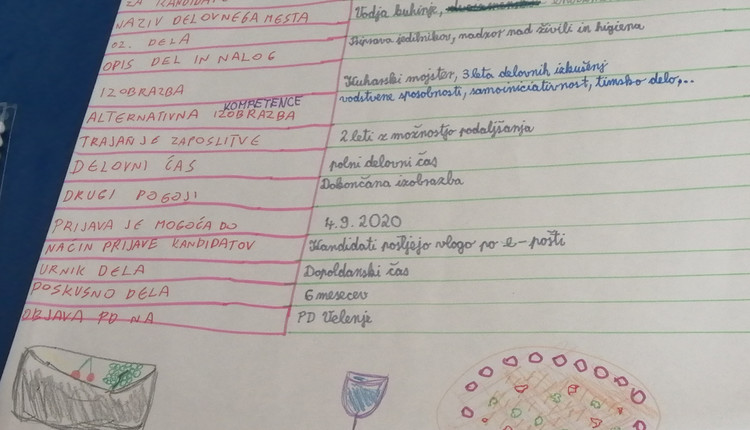 ZA KANDIDAT
NAZIV DELOVNEGA MESTA Vodja kuhinje,
OZ. DELA
OPIS DEL IN NALOG Priprava jedilnikov, nadzor nad živili in higiena
IZOBRAZBA Kuharski mojster, 3 leta delovnih izkušenj
KOMPETENCE vodstvene sposobnosti, samoiniciativnost, timsko delo,...
ALTERNATIVNA IZOBRAZBA
TRAJANJE ZAPOSLITVE 2 leti z možnostjo podaljšanja
DELOVNI ČAS polni delovni čas
DRUGI POGOJI Dokončana izobrazba
PRIJAVA JE MOGOČA DO 4.9.2020
NAČIN PRIJAVE KANDIDATOV Kandidati pošljejo vlogo po e-pošti
URNIK DELA Dopoldanski čas
POSKUSNO DELA 6 mesecev
OBJAVA PD NA PD Velenje